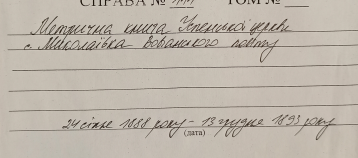 СПРАВА № ТОМ №
Метрична книга Успенської церкви
с. Миколаївка Вовчанского повіту
24 січня 1888 року - 13 грудня 1893 року
(дата)